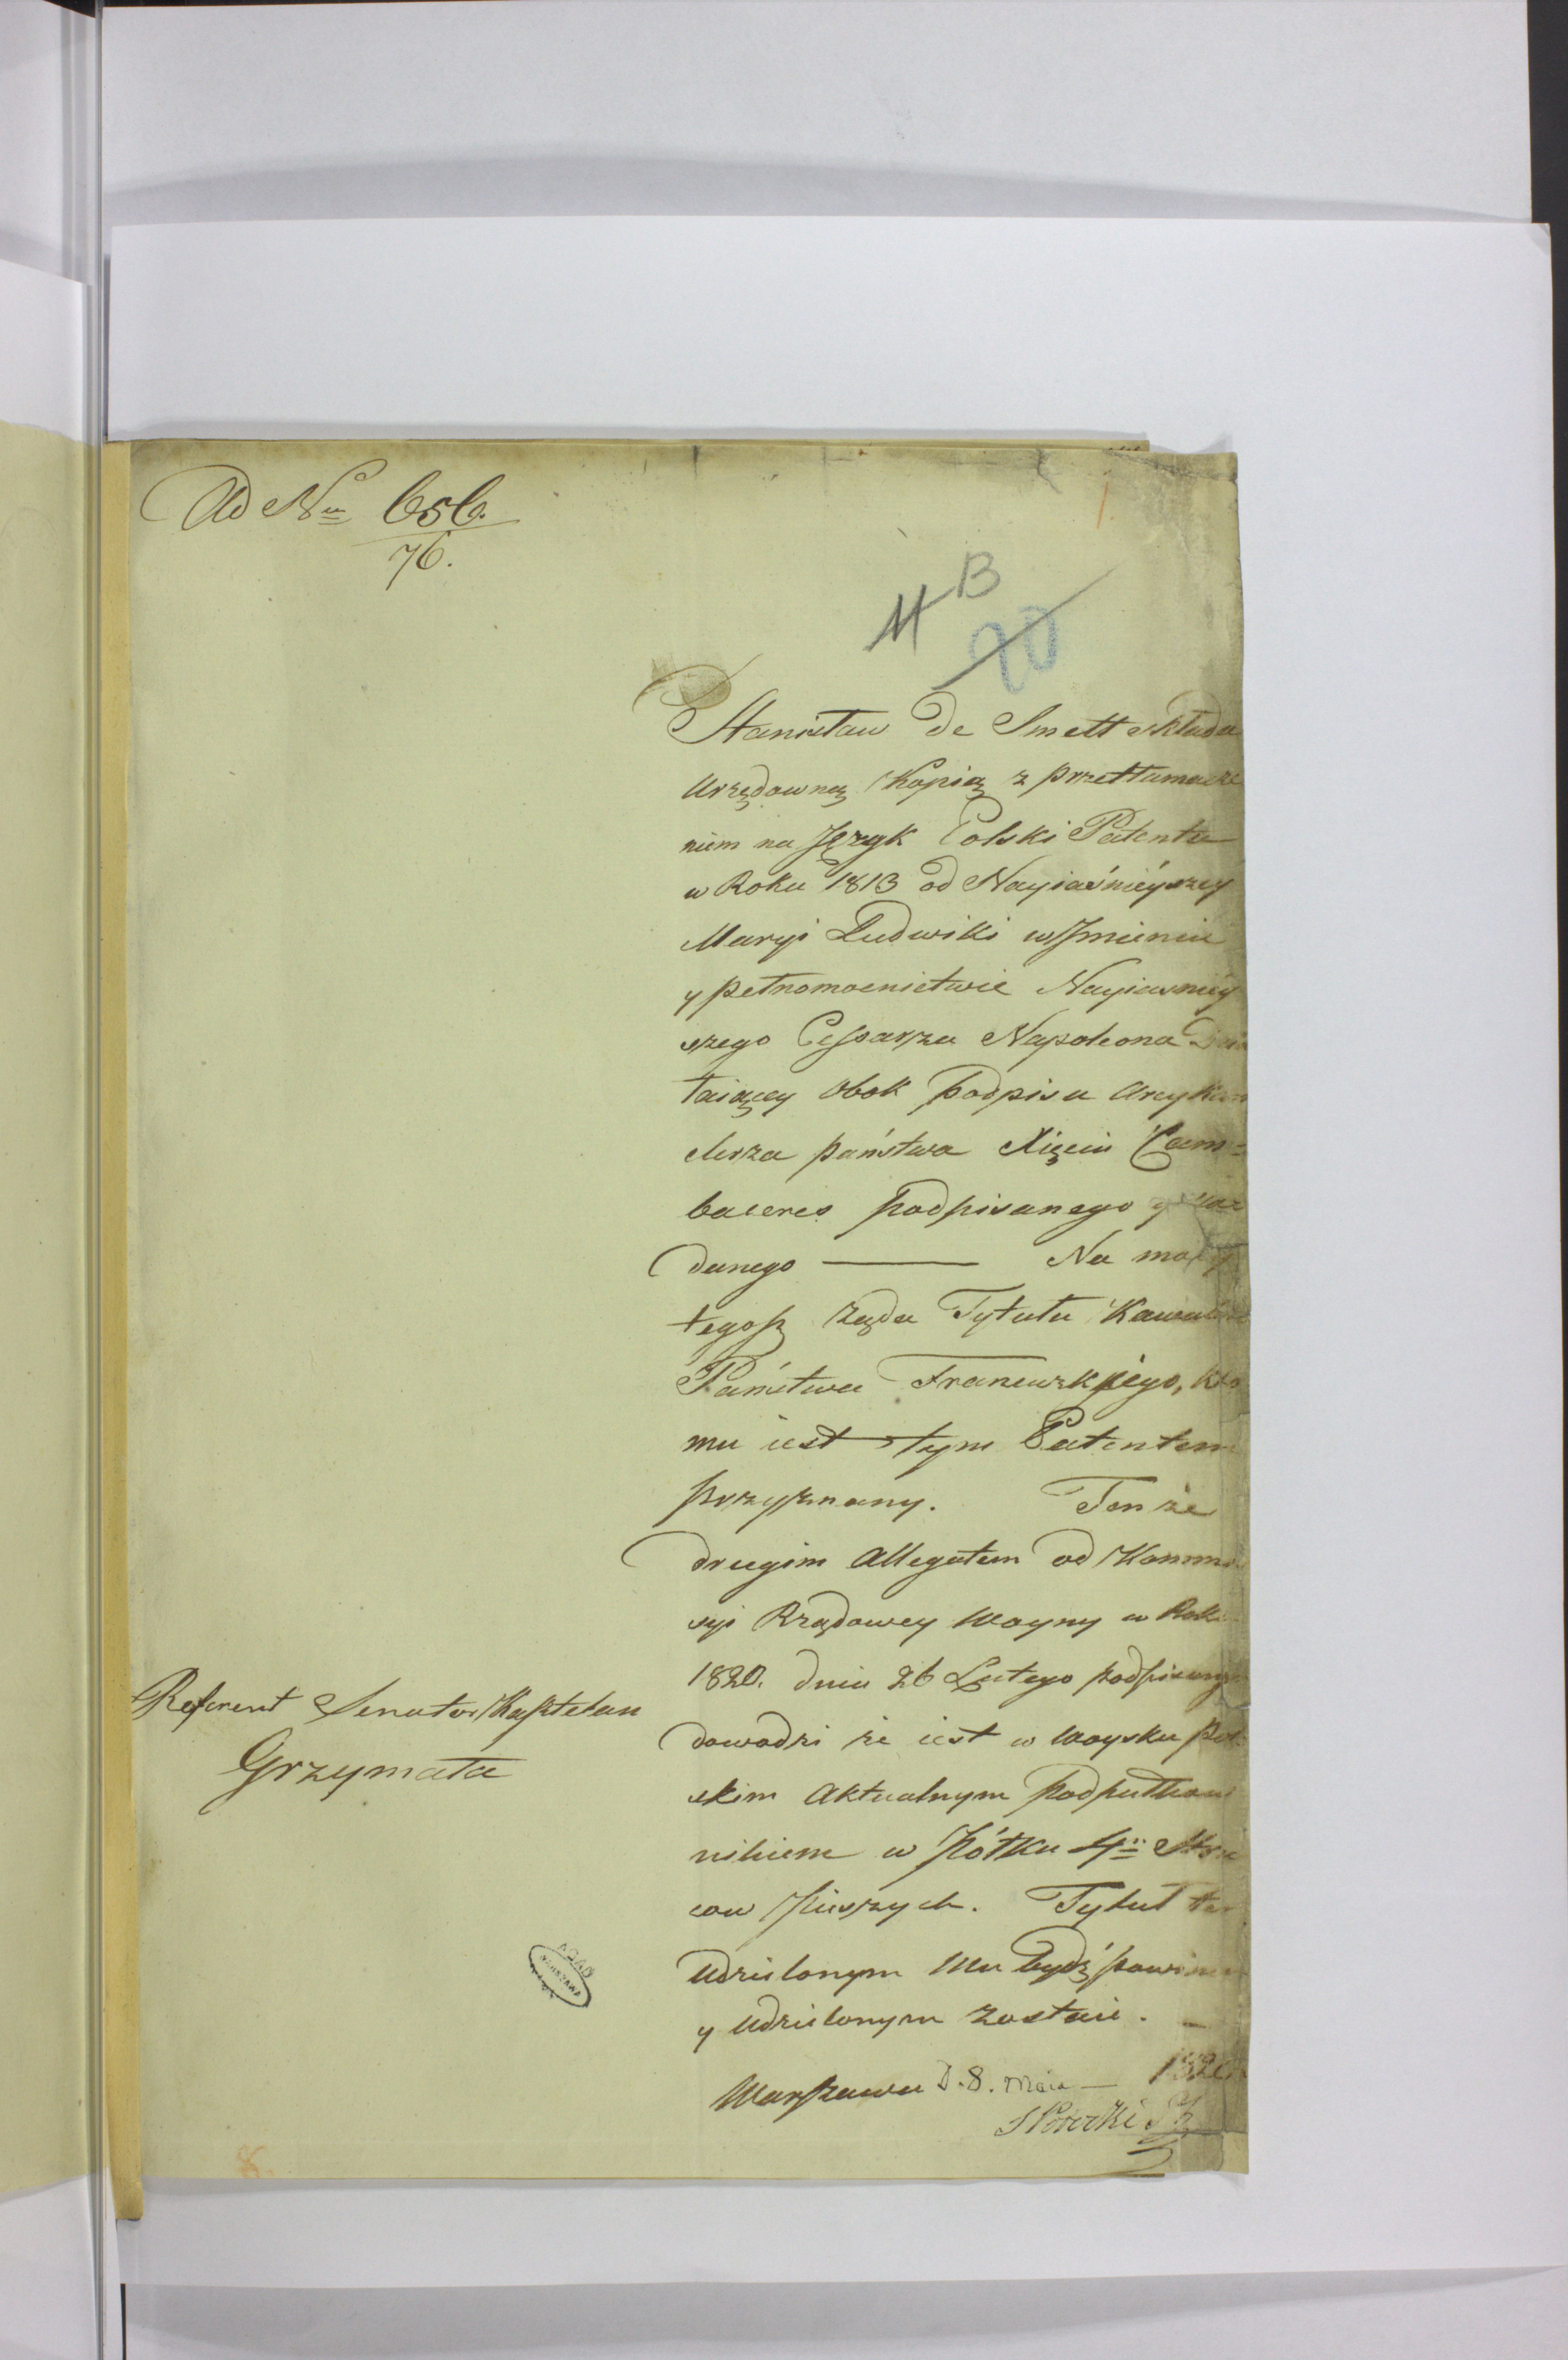 Ad Nu 656.
76.
11 B
20
Stanisław De Smett składa
Urzędowną Kopią z przetłumacze
niem na Język Polski Patentu
w Roku 1813 od Nayiaśnieyszey
Maryi Ludwiki w Jmieniu
y pełnomocnictwie Nayiasniey
szego Cessarza Napoleona Dzia
łaiącey obok Podpisu Arcykan
clerza państwa Xięcia Cam=
baceres podpisanego y
danego — Na mocy
tegosz żąda Tytułu Kawalera
Państwa Francuzkiego, kto
mu iest tym Patentem
przyznany. Tenże
drugim Allegatem od Kommi
syi Rządowey Woyny w Roku
1820. dniu 26 Lutego podpisanym
dowodzi że iest w Woysku Pol
skim Aktualnym Podpułkow
nikiem w Półku 4m Strze
cow Pieszych. Tytuł ten
Udzielonym Mu bydź powinien
y Udzielonym zostaie. —
Warszawa D. 8. Maia — 1820
Referent Senator Kasztelan
Grzymała
AGAD
WARSZAWA